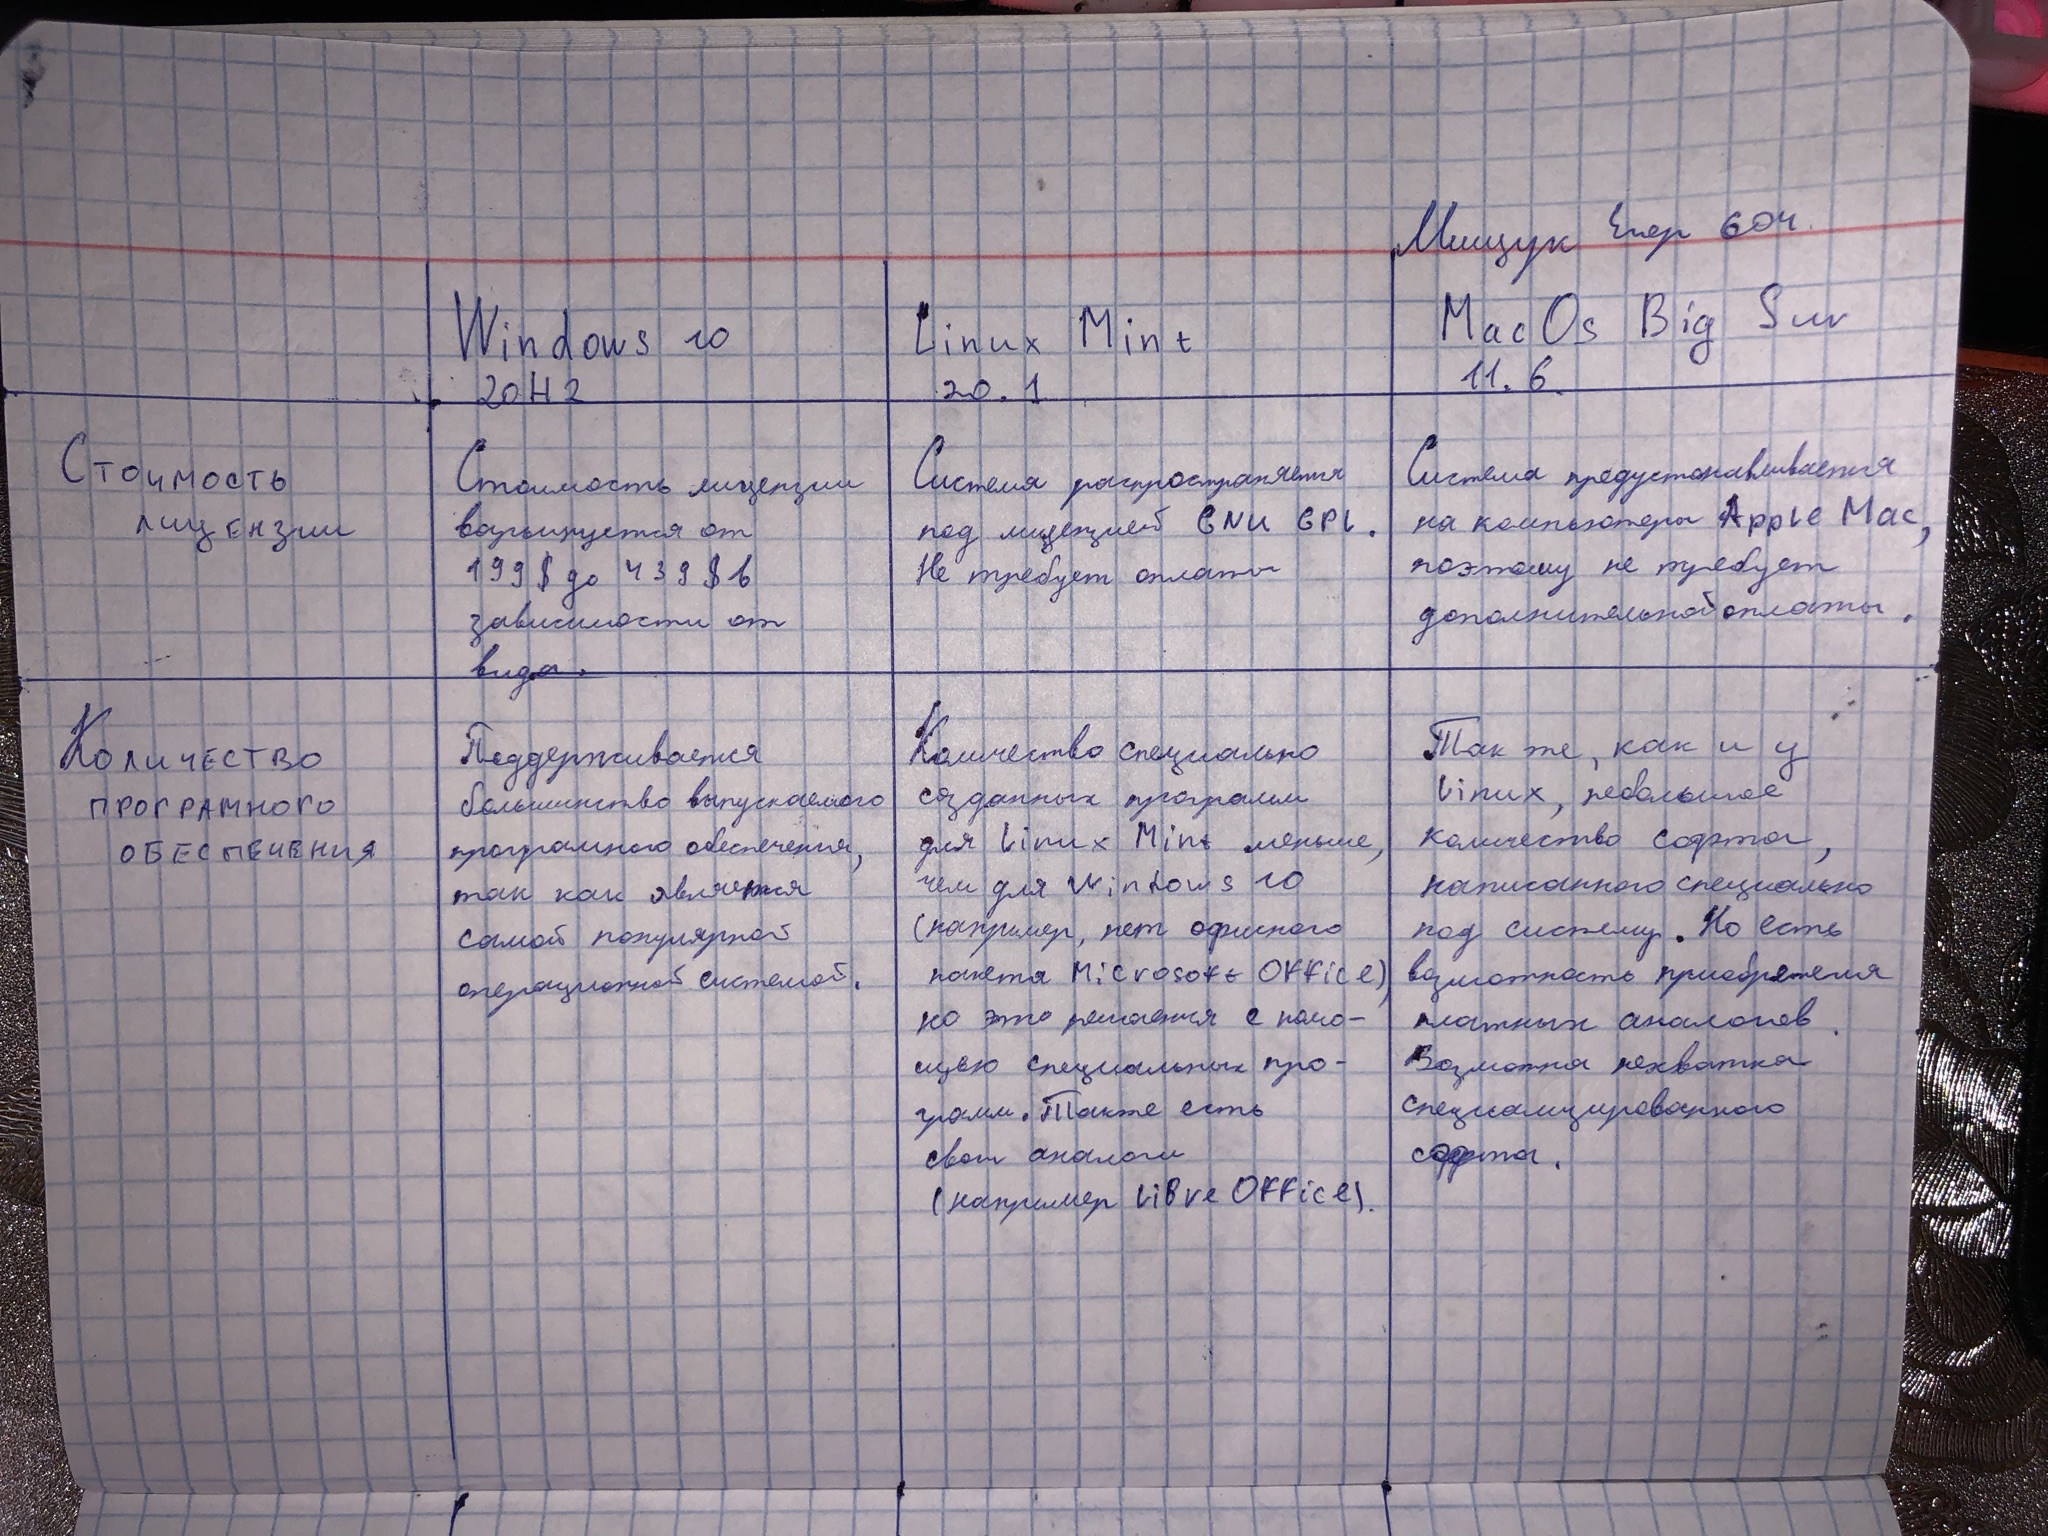 Мищук Егор 604.
Windows 10
20H2
Linux Mint
20.1
MacOs Big Sur
11.6.
Стоимость
лицензии
Стоимость лицензии
варьируется от
199$ до 439$ в
зависимости от
вида.
Система распространяется
под лицензией GNU GPL.
Не требует оплаты
Система предустанавливается
на компьютеры Apple Mac,
поэтому не требует
дополнительной оплаты.
Количество
програмного
обеспечения
Поддерживается
большинство выпускаемого
програмного обеспечения,
так как является
самой популярной
операционной системой.
Количество специально
созданных программ
для Linux Mint меньше,
чем для Windows 10
(например, нет офисного
пакета Microsoft Office),
но это решается с помо-
щью специальных про-
грамм. Также есть
свои аналоги
(например LibreOffice).
Так же, как и у
Linux, небольшое
количество софта,
написанного специально
под систему. Но есть
возможность приобретения
платных аналогов.
Возможна нехватка
специализированного
софта.